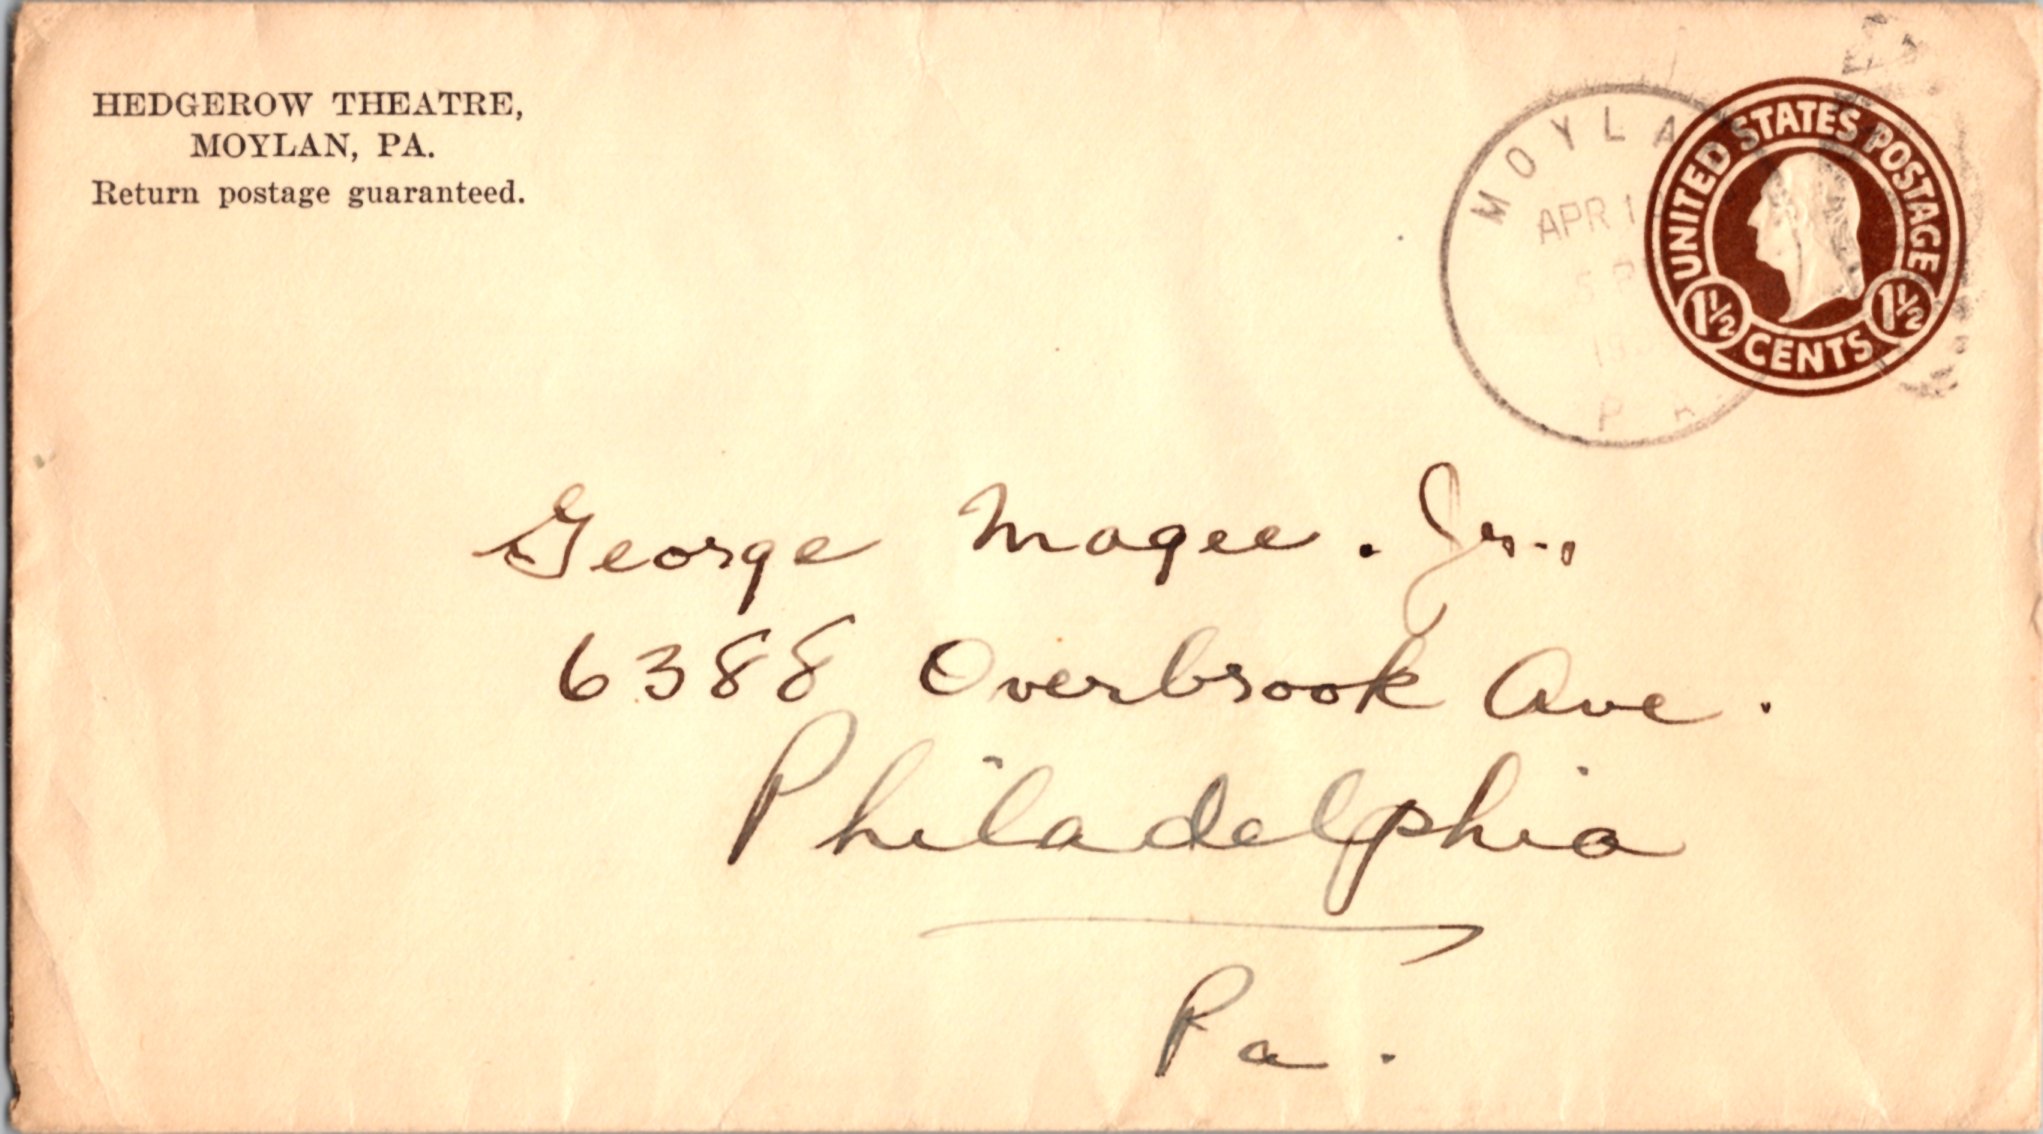 HEDGEROW THEATRE,
MOYLAN, PA.
Return postage guaranteed.
MOYLA
APR 1
PA
UNITED STATES POSTAGE
1½ CENTS 1½
George Magee. Jr.,
6388 Overbrook Ave.
Philadelphia
Pa.